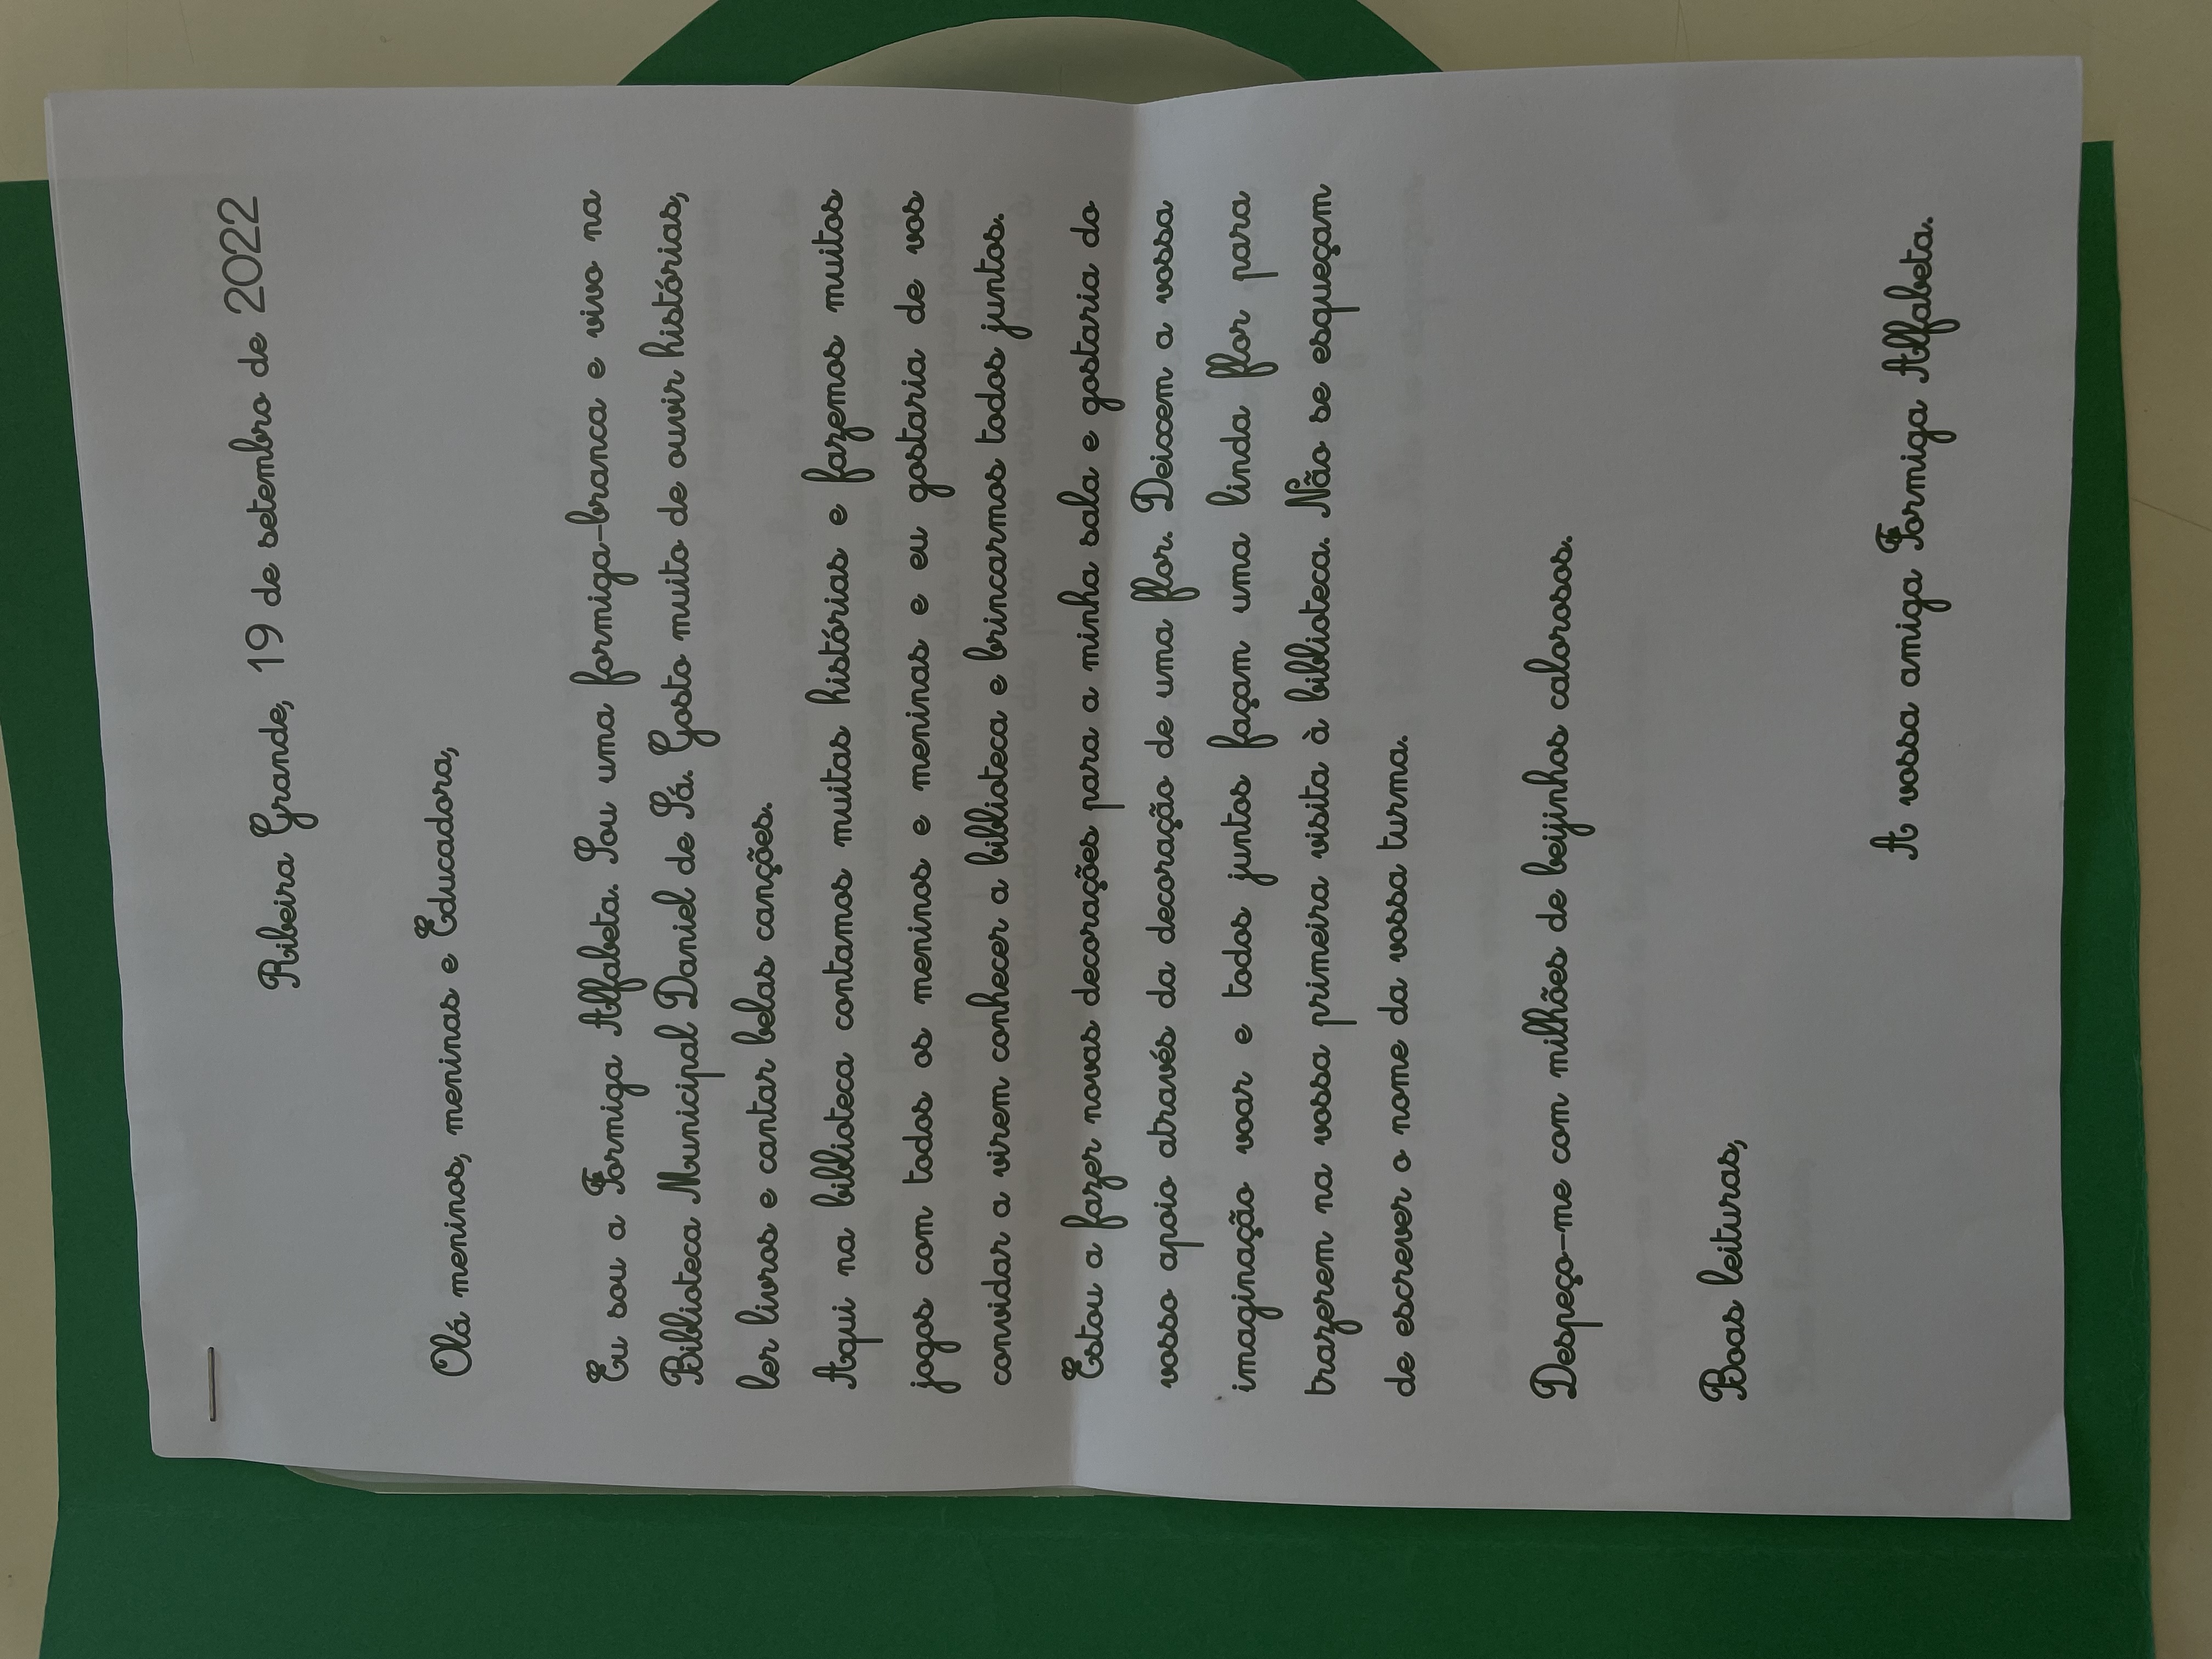 Ribeira Grande, 19 de setembro de 2022
Olá meninos, meninas e Educadora,
Eu sou a Formiga Alfabeta. Sou uma formiga-branca e vivo na
Biblioteca Municipal Daniel de Sá. Gosto muito de ouvir histórias,
ler livros e cantar belas canções.
Aqui na biblioteca contamos muitas histórias e fazemos muitos
jogos com todos os meninos e meninas e eu gostaria de vos
convidar a virem conhecer a biblioteca e brincarmos todos juntos.
Estou a fazer novas decorações para a minha sala e gostaria do
vosso apoio através da decoração de uma flor. Deixem a vossa
imaginação voar e todos juntos façam uma linda flor para
trazerem na vossa primeira visita à biblioteca. Não se esqueçam
de escrever o nome da vossa turma.
Despeço-me com milhões de beijinhos calorosos.
Boas leituras,
A vossa amiga Formiga Alfabeta.